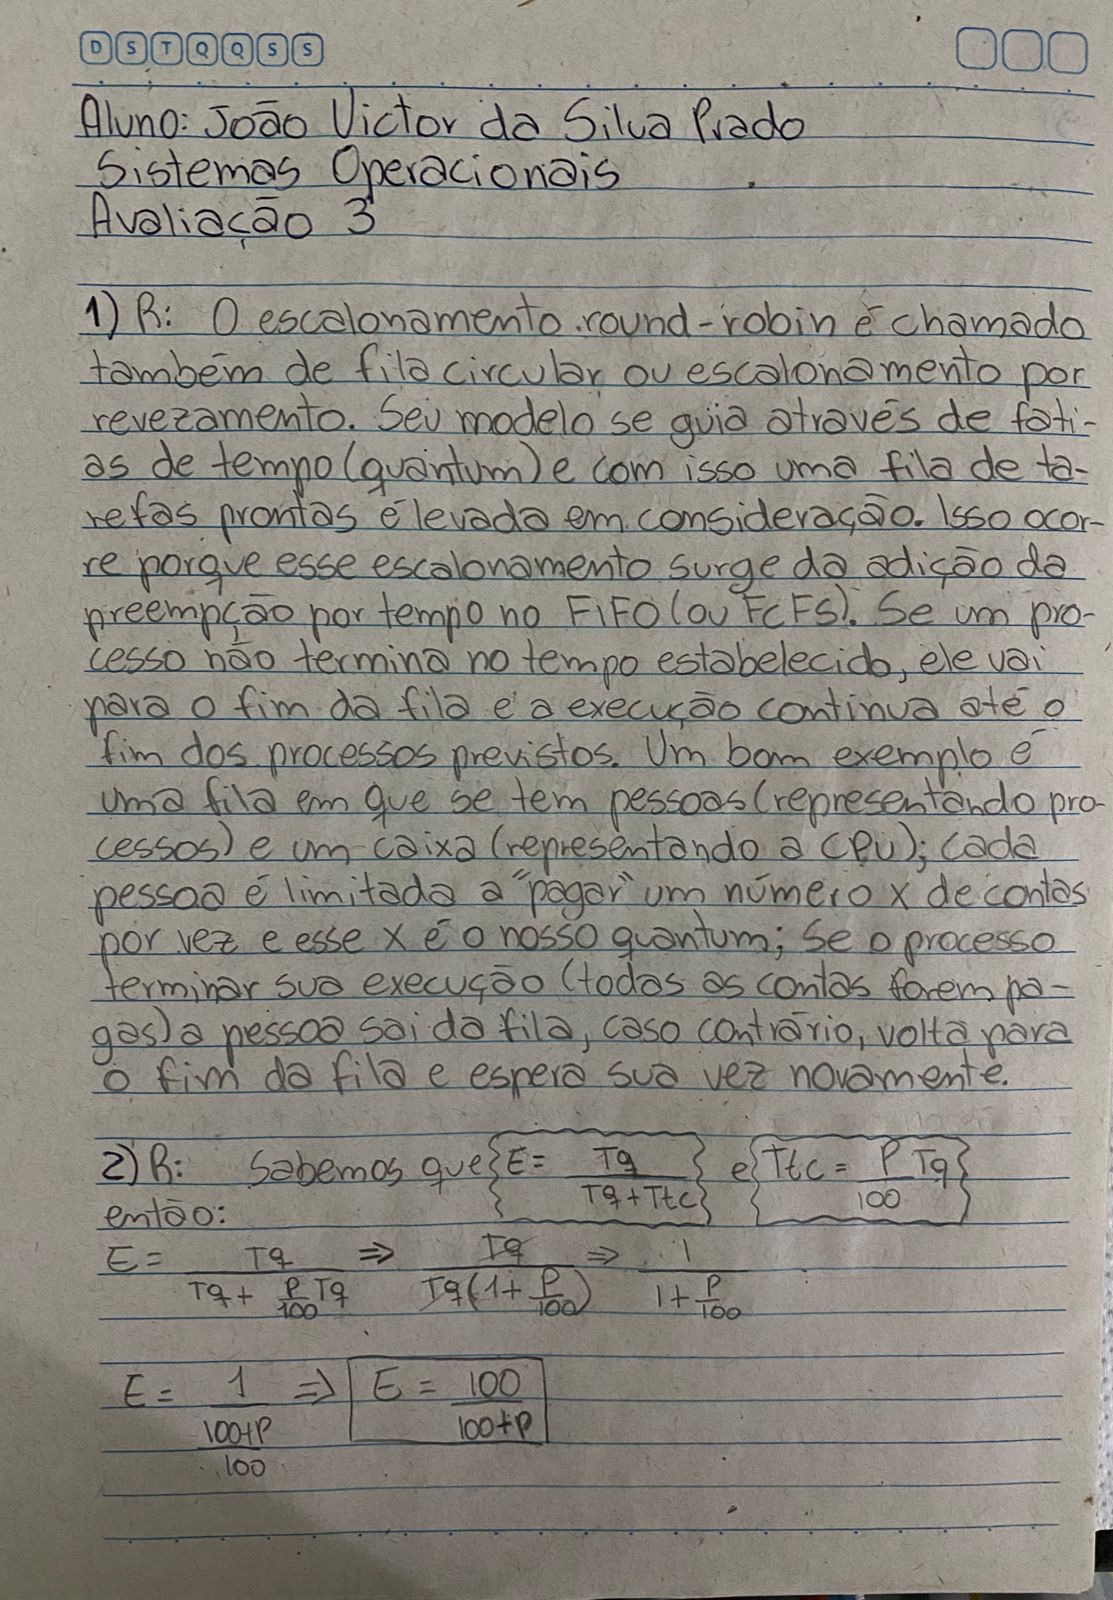 D S T Q Q S S
Aluno: João Victor da Silva Prado
Sistemas Operacionais
Avaliação 3
1) R: O escalonamento round-robin é chamado
também de fila circular ou escalonamento por
revezamento. Seu modelo se guia através de fati-
as de tempo (quantum) e com isso uma fila de ta-
refas prontas é levada em consideração. Isso ocor-
re porque esse escalonamento surge da adição da
preempção por tempo no FIFO (ou FCFS). Se um pro-
cesso não termina no tempo estabelecido, ele vai
para o fim da fila e a execução continua até o
fim dos processos previstos. Um bom exemplo é
uma fila em que se tem pessoas (representando pro-
cessos) e um caixa (representando a CPU); cada
pessoa é limitada a "pagar" um número x de contas
por vez e esse x é o nosso quantum; Se o processo
terminar sua execução (todas as contas forem pa-
gas) a pessoa sai da fila, caso contrário, volta para
o fim da fila e espera sua vez novamente.
2) R: Sabemos que {E = Tq / (Tq + Ttc)} e {Ttc = P/100 Tq}
então:
E = Tq / (Tq + P/100 Tq) ⇒ Tq / (Tq(1 + P/100)) ⇒ 1 / (1 + P/100)
E = 1 / ((100+P)/100) ⇒ E = 100 / (100+P)